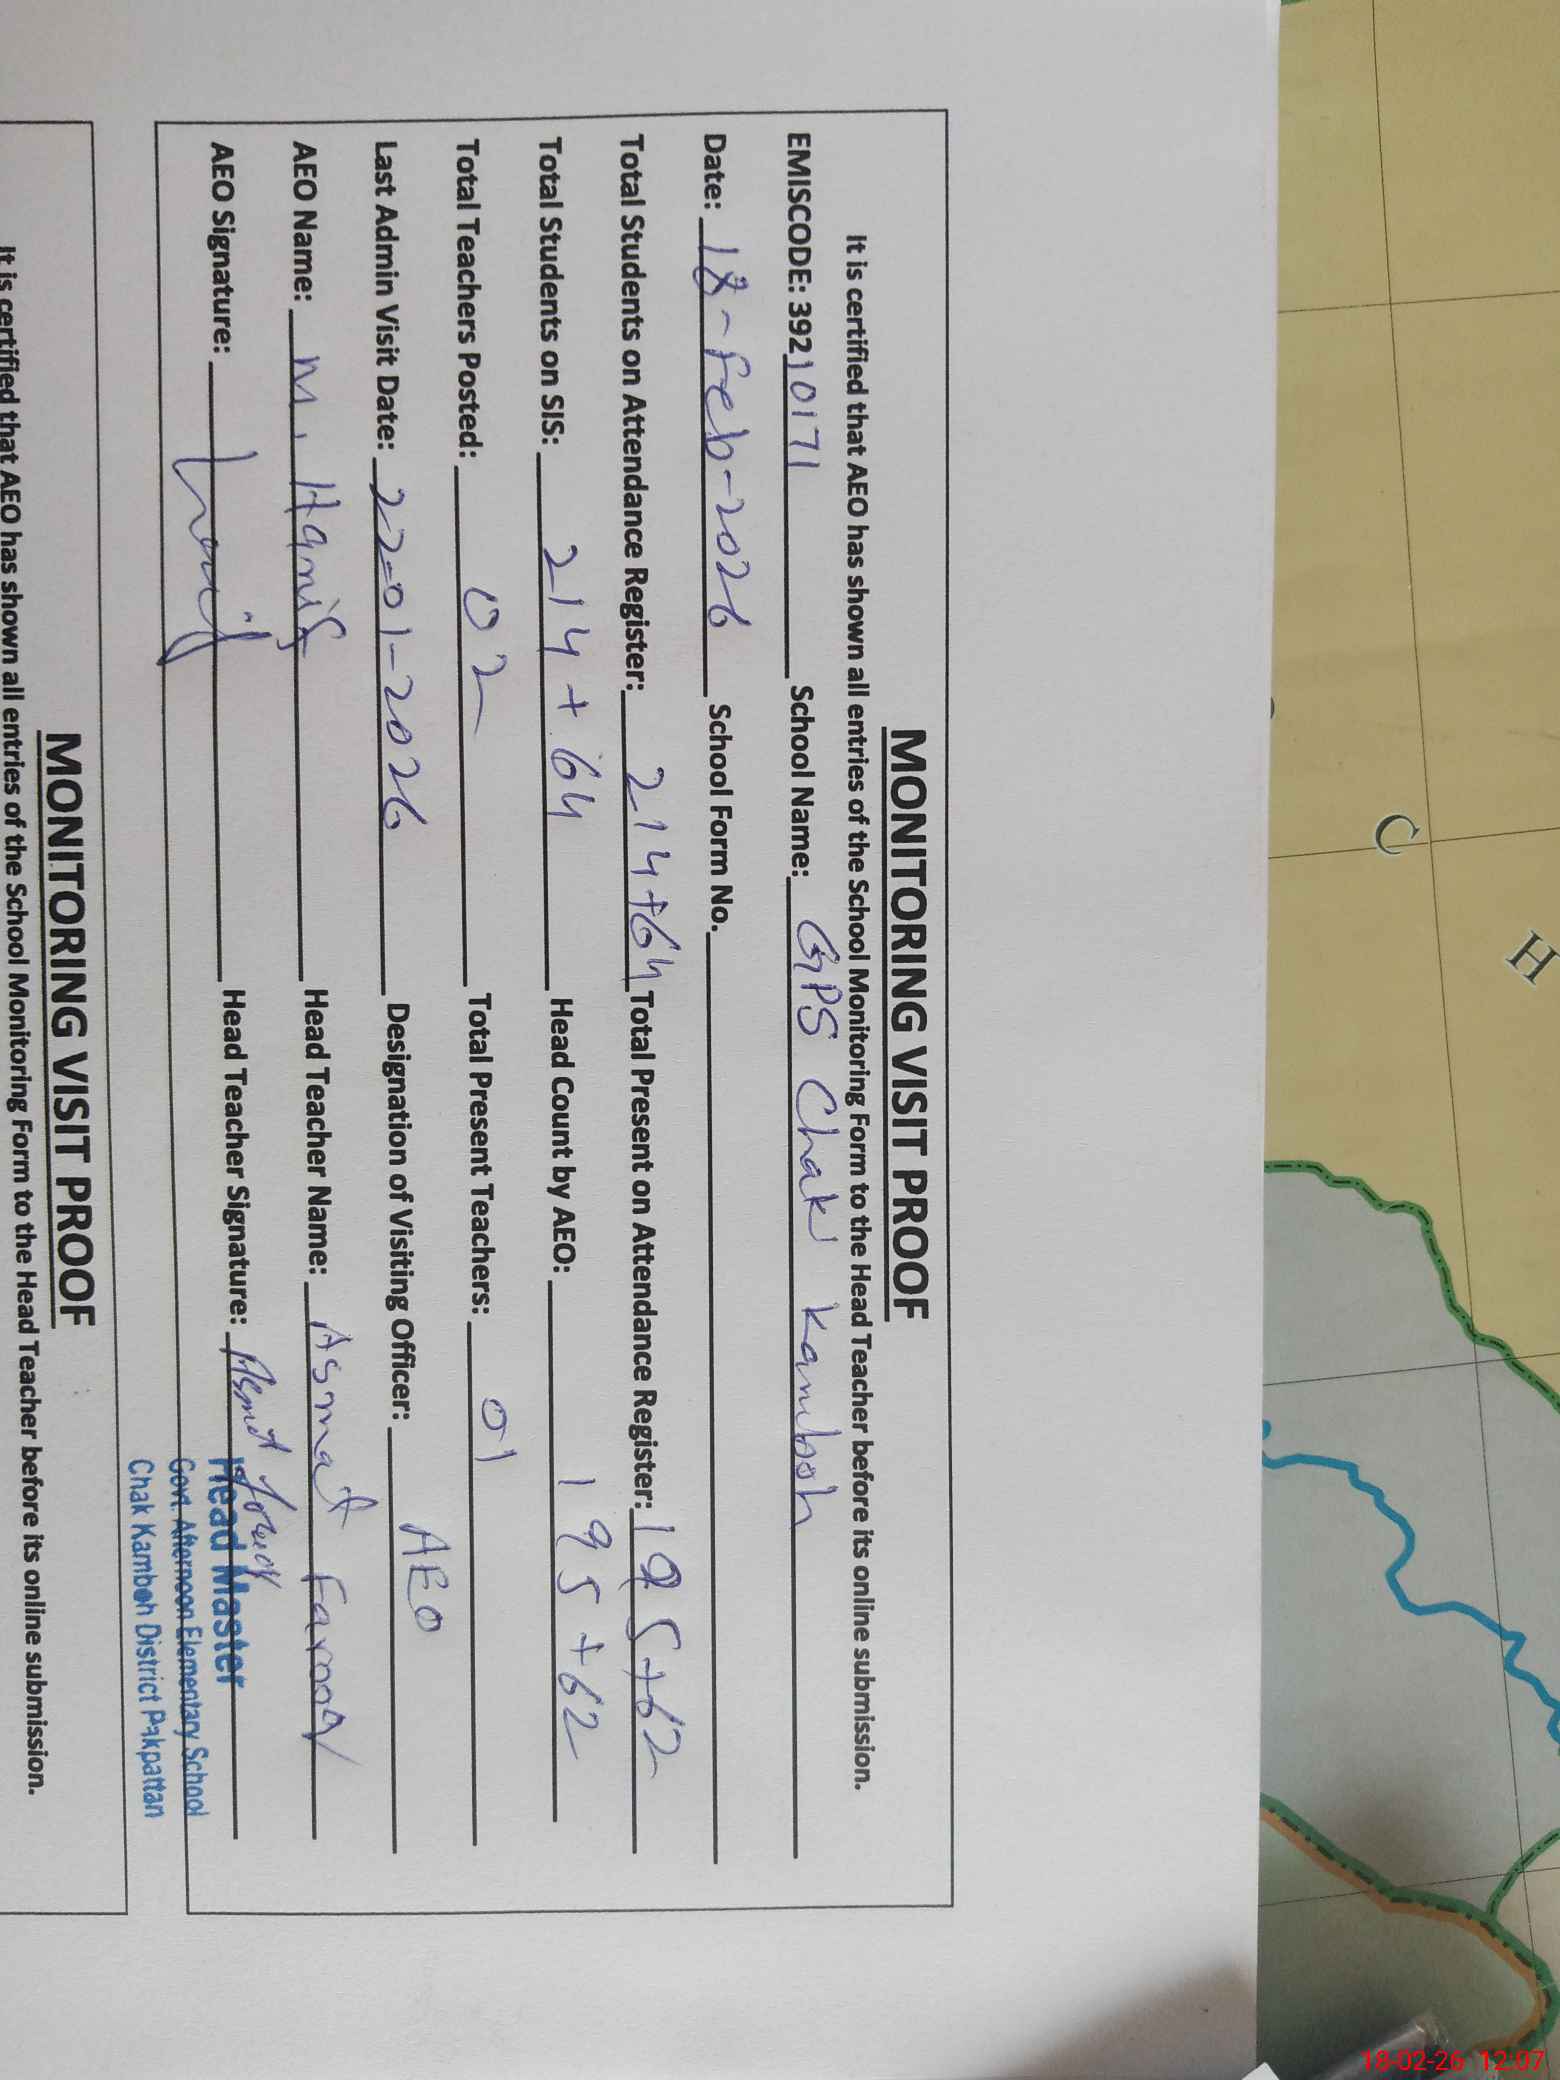 MONITORING VISIT PROOF
It is certified that AEO has shown all entries of the School Monitoring Form to the Head Teacher before its online submission.
EMISCODE: 39210171 School Name: GPS Chak Kamboh
Date: 18-Feb-2026 School Form No.
Total Students on Attendance Register: 214+64 Total Present on Attendance Register: 195+62
Total Students on SIS: 214+64 Head Count by AEO: 195+62
Total Teachers Posted: 02 Total Present Teachers: 01
Last Admin Visit Date: 22-01-2026 Designation of Visiting Officer: AEO
AEO Name: M. Hanif Head Teacher Name: Asmat Farooq
AEO Signature: Hanif Head Teacher Signature: Asmat Farooq
Head Master
Govt. Afternoon Elementary School
Chak Kamboh District Pakpattan
MONITORING VISIT PROOF
It is certified that AEO has shown all entries of the School Monitoring Form to the Head Teacher before its online submission.
C
H
18-02-26 12:07